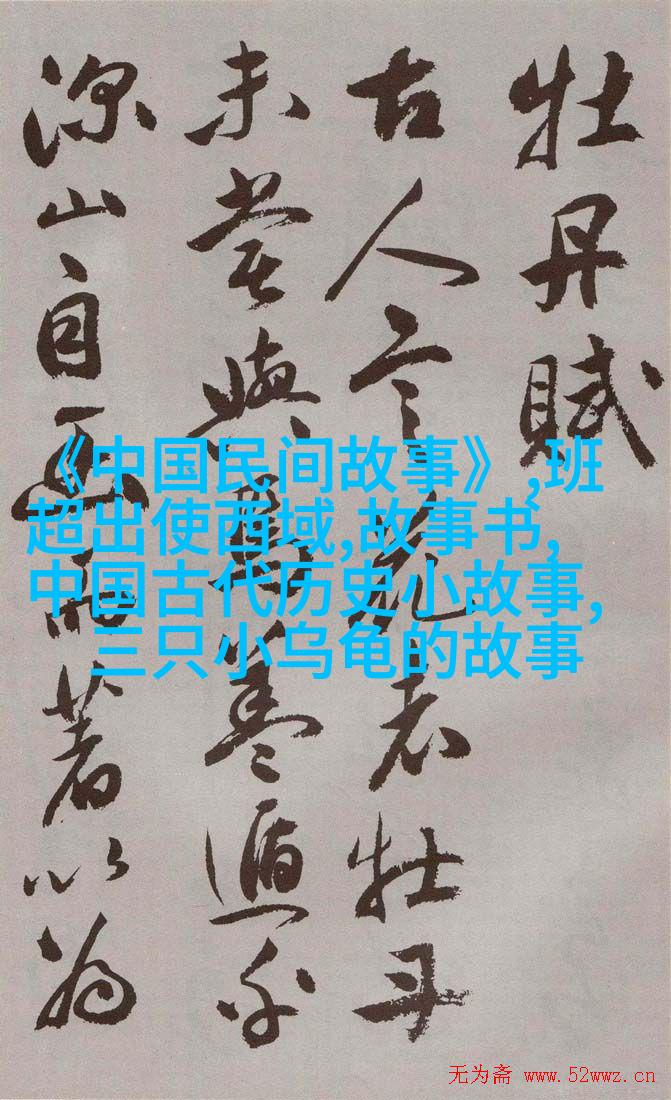 牡丹賦
古人言花者牡丹
未嘗與焉蓋遁乎
深山自幽而著以為
《中国民间故事》,班
超出使西域,故事书,
中国古代历史小故事,
三只小乌龟的故事
无为斋 www.52wwz.cn